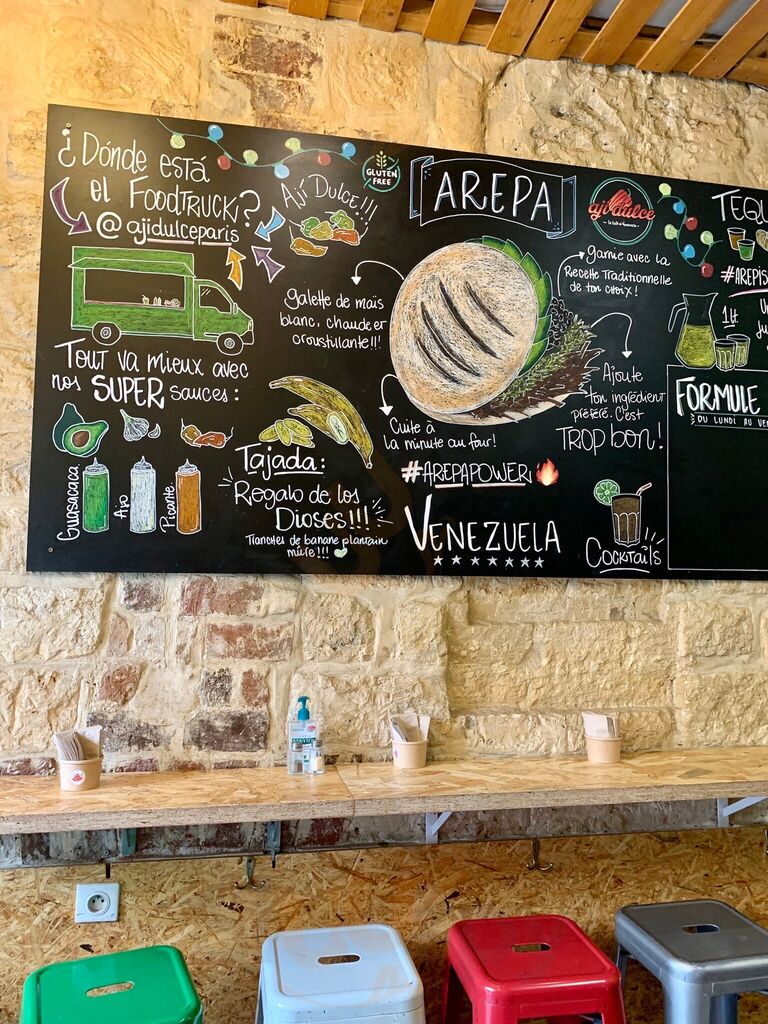 ¿Dónde está
el FoodTruck?
@ajidulceparis
Tout va mieux avec
nos SUPER sauces :
Guasacaca
Ajo
Picante
Ají Dulce!!!
GLUTEN
FREE
Tajada:
Regalo de los
Dioses!!!
Tranches de banane plantain
mûre!!!
AREPA
galette de maïs
blanc, chaude et
croustillante!!!
Cuite à
la minute au four!
#AREPAPOWER
VENEZUELA
aji dulce
garnie avec la
Recette Traditionnelle
de ton choix!
Ajoute
ton ingrédient
préféré. C'est
TROP bon!
Cocktails
TEQU
#AREPIS
U
ju
1Lt.
FORMULE
DU LUNDI AU VE